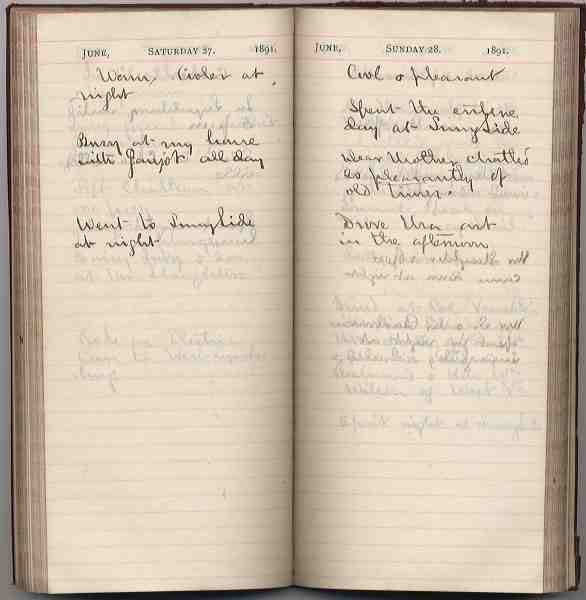 JUNE, SATURDAY 27. 1891.
Warm, Cooler at
night
Busy at my house
with all day
Went to Sunnyside
at night
JUNE, SUNDAY 28. 1891.
Cool & pleasant
Spent the entire
day at Sunnyside
Dear Mother chatted
so pleasantly of
old times.
Drove out
in the afternoon